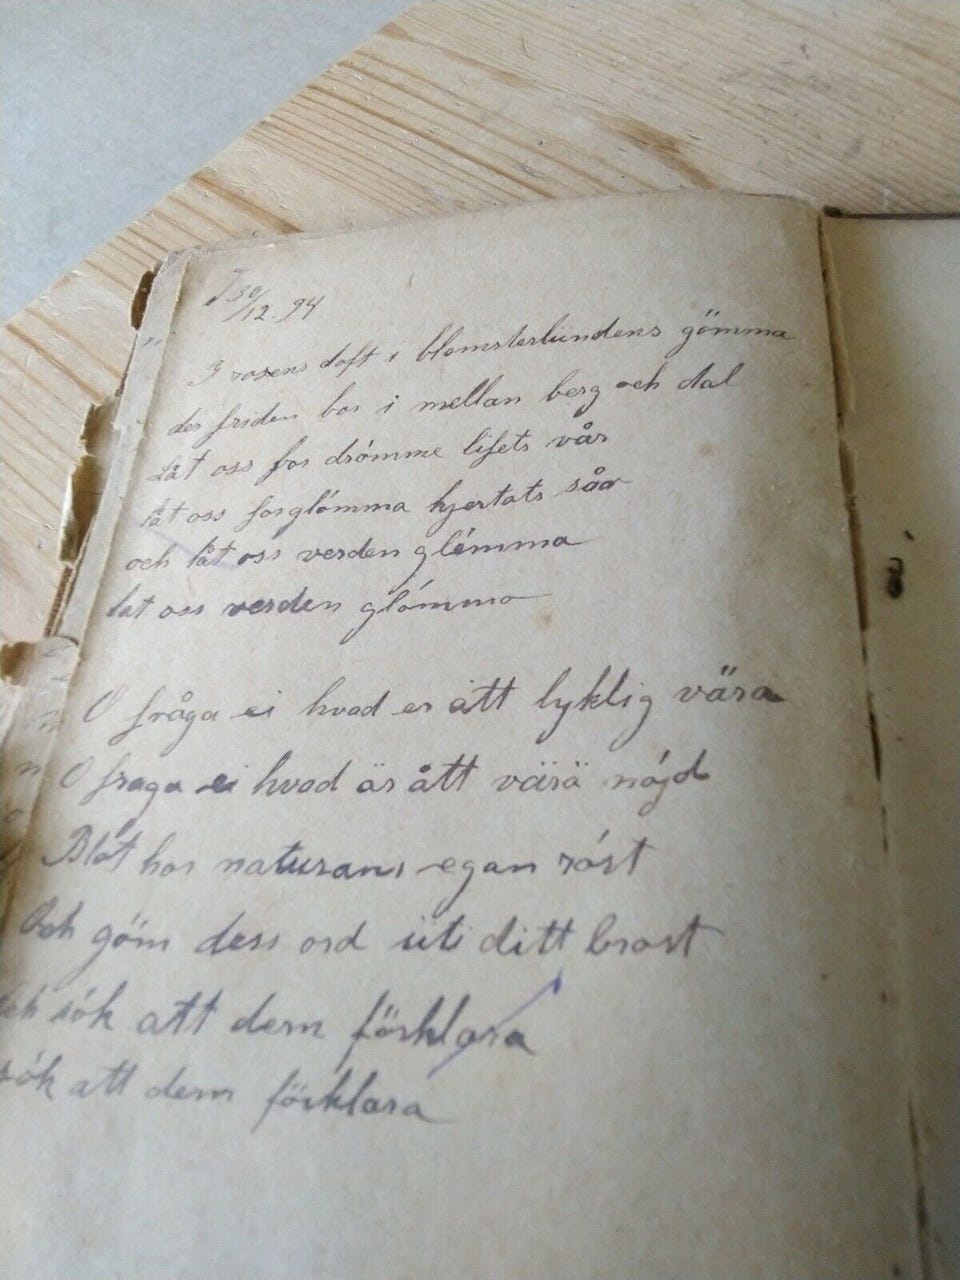 J 30/12. 94
I rosens doft i blomsterlundens gömma
der friden bor i mellan berg och dal
Låt oss for drömme lifets vår
låt oss forglömma hjertats sår
och låt oss verden glömma
lat oss verden glömma
O fråga ei hvad er att lyklig vära
O fraga ei hvad är ått värä nöjd
Blót hor naturans egan róst
Och göm dess ord uti ditt brost
och sók att dem förklara
sók att dem förklara